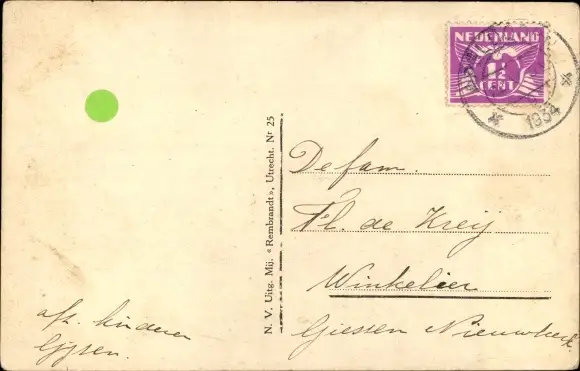 NEDERLAND
1½
CENT
1934
N. V. Uitg. Mij. «Rembrandt», Utrecht. Nr 25
De fam.
Fl. de Kreij
Winkelier
Giessen Nieuwkerk
afz. kinderen
Gijsen.